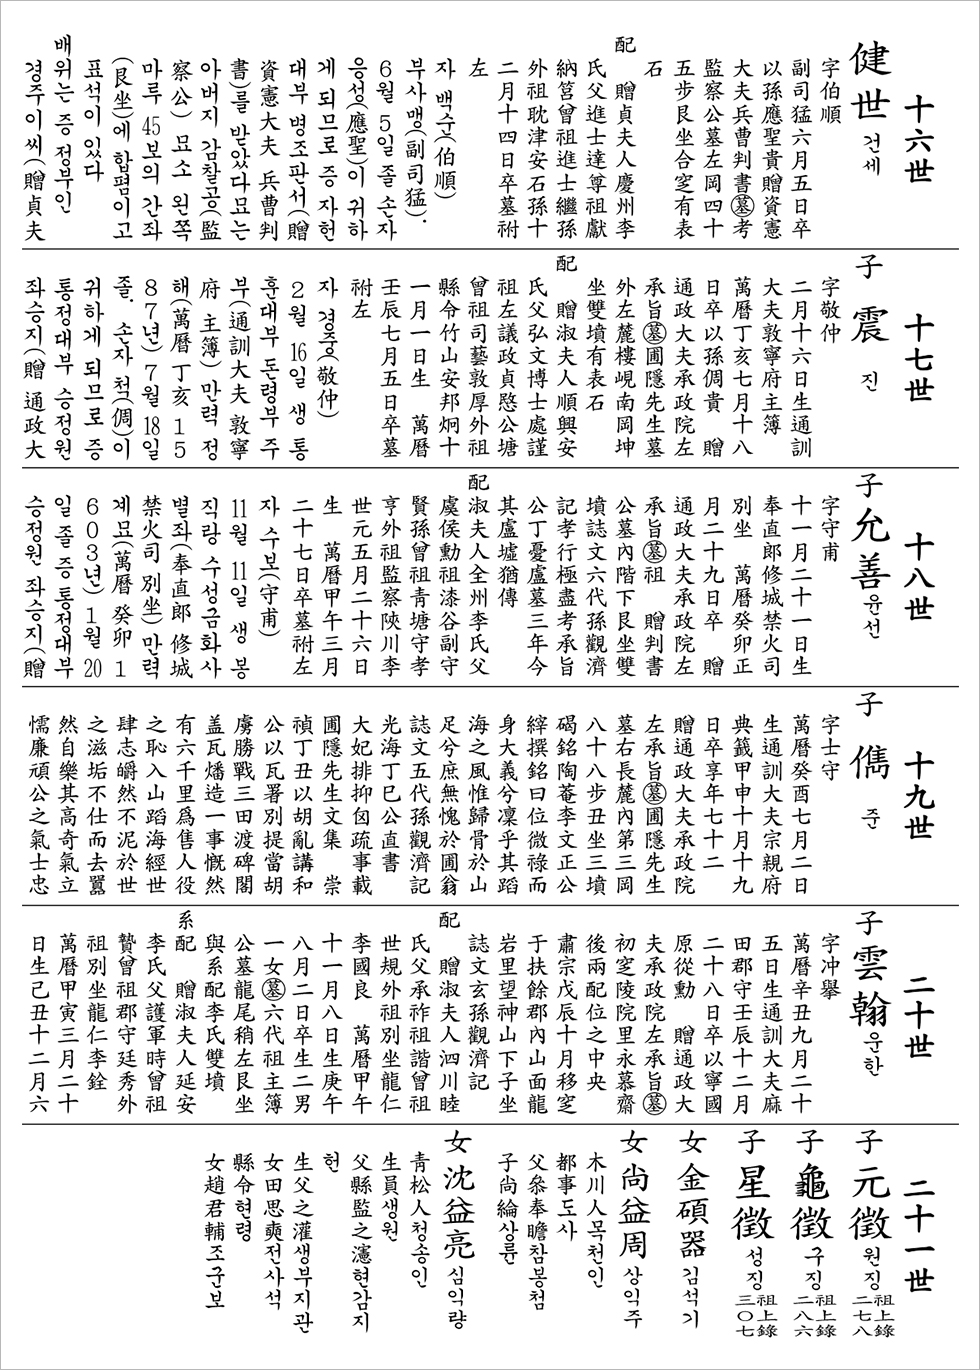 十六世
健世 건세
字伯順
副司猛六月五日卒
以孫應聖貴贈資憲
大夫兵曹判書墓考
監察公墓左岡四十
五步艮坐合窆有表
石
配 贈貞夫人慶州李
氏父進士達尊祖獻
納筥曾祖進士繼孫
外祖耽津安石孫十
二月十四日卒墓祔
左
자 백순(伯順)
부사맹(副司猛).
6월 5일 졸 손자
응성(應聖)이 귀하
게 되므로 증 자헌
대부 병조판서(贈
資憲大夫 兵曹判
書)를 받았다 묘는
아버지 감찰공(監
察公) 묘소 왼쪽
마루 45보의 간좌
(艮坐)에 합폄이고
표석이 있다
배위는 증 정부인
경주이씨(贈貞夫
十七世
子 震 진
字敬仲
二月十六日生通訓
大夫敦寧府主簿
萬曆丁亥七月十八
日卒以孫倜貴 贈
通政大夫承政院左
承旨墓圃隱先生墓
外左麓樓峴南岡坤
坐雙墳有表石
配 贈淑夫人順興安
氏父弘文博士處謹
祖左議政貞愍公瑭
曾祖司藝敦厚外祖
縣令竹山安邦炯十
一月一日生 萬曆
壬辰七月五日卒墓
祔左
자 경중(敬仲)
2월 16일 생 통
훈대부 돈령부 주
부(通訓大夫 敦寧
府 主簿) 만력 정
해(萬曆 丁亥 15
87년) 7월 18일
졸. 손자 척(倜)이
귀하게 되므로 증
통정대부 승정원
좌승지(贈 通政大
十八世
子 允善 윤선
字守甫
十一月二十一日生
奉直郎修城禁火司
別坐 萬曆癸卯正
月二十九日卒 贈
通政大夫承政院左
承旨墓祖 贈判書
公墓內階下艮坐雙
墳誌文六代孫觀濟
記孝行極盡考承旨
公丁憂廬墓三年今
其盧墟猶傳
配 淑夫人全州李氏父
虞侯勳祖漆谷副守
賢孫曾祖靑塘守孝
亨外祖監察陜川李
世元五月二十六日
生 萬曆甲午三月
二十七日卒墓祔左
자 수보(守甫)
11월 11일 생 봉
직랑 수성금화사
별좌(奉直郎 修城
禁火司 別坐) 만력
계묘(萬曆 癸卯 1
603년) 1월 20
일 졸 증 통정대부
승정원 좌승지(贈
十九世
子 儁 준
字士守
萬曆癸酉七月二日
生通訓大夫宗親府
典籤甲申十月十九
日卒享年七十二
贈通政大夫承政院
左承旨墓圃隱先生
墓右長麓內第三岡
八十八步丑坐三墳
碣銘陶菴李文正公
縡撰銘曰位微祿而
身大義兮凜乎其蹈
海之風惟歸骨於山
足兮庶無愧於圃翁
誌文五代孫觀濟記
光海丁巳公直書
大妃排抑囟疏事載
圃隱先生文集 崇
禎丁丑以胡亂講和
公以瓦署別提當胡
虜勝戰三田渡碑閣
盖瓦燔造一事慨然
有六千里爲售人役
之恥入山蹈海經世
肆志皭然不泥於世
之滋垢不仕而去囂
然自樂其高奇氣立
懦廉頑公之氣士忠
二十世
子 雲翰 운한
字冲擧
萬曆辛丑九月二十
五日生通訓大夫麻
田郡守壬辰十二月
二十八日卒以寧國
原從勳 贈通政大
夫承政院左承旨墓
初窆陵院里永慕齋
後兩配位之中央
肅宗戊辰十月移窆
于扶餘郡內山面龍
岩里望神山下子坐
誌文玄孫觀濟記
配 贈淑夫人泗川睦
氏父承祚祖諧曾祖
世規外祖別坐龍仁
李國良 萬曆甲午
十一月八日生庚午
八月二日卒生二男
一女墓六代祖主簿
公墓龍尾稍左艮坐
與系配李氏雙墳
系配 贈淑夫人延安
李氏父護軍時曾祖
贄曾祖郡守廷秀外
祖別坐龍仁李銓
萬曆甲寅三月二十
日生己丑十二月六
二十一世
子 元徵 원징 祖上錄 二七八
子 龜徵 구징 祖上錄 二八六
子 星徵 성징 祖上錄 三〇七
女 金碩器 김석기
女 尙益周 상익주
木川人목천인
都事도사
父叅奉瞻참봉첨
子尙綸상륜
女 沈益亮 심익량
靑松人청송인
生員생원
父縣監之瀗현감지
헌
生父之灌생부지관
女田思奭전사석
縣令현령
女趙君輔조군보